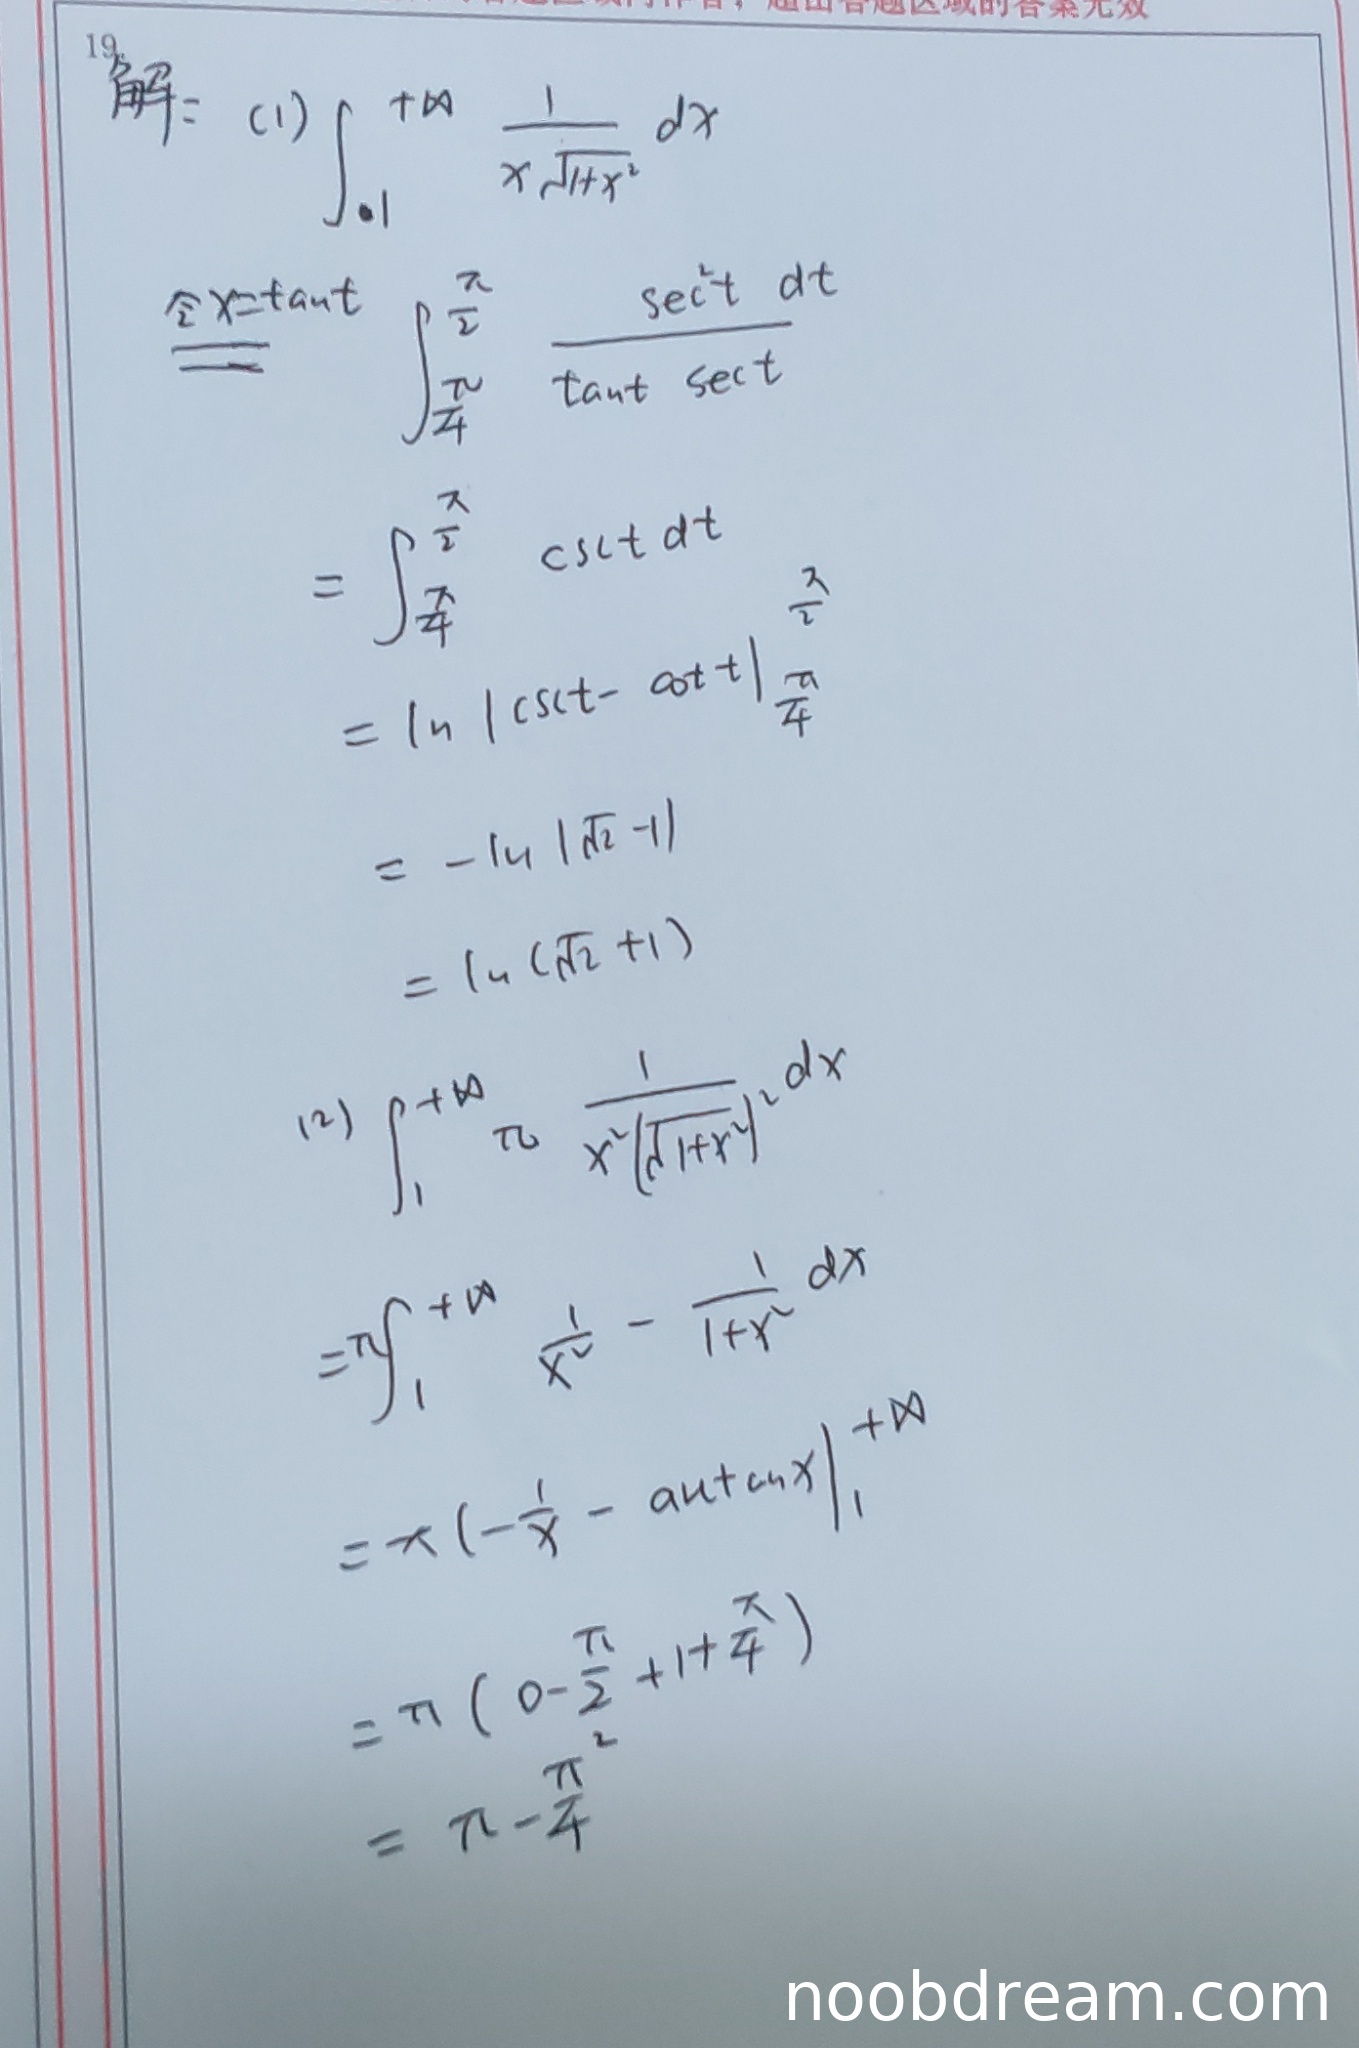 超出答题区域的答案无效
19.
解: (1) ∫₁^{+∞} 1/(x√(1+x²)) dx
令x=tant ∫_{π/4}^{π/2} sec²t dt/(tant sect)
= ∫_{π/4}^{π/2} csct dt
= ln |csct - cot t| |_{π/4}^{π/2}
= -ln |√2 -1|
= ln (√2 +1)
(2) ∫₁^{+∞} π 1/(x²(√(1+x²))²) dx
= π∫₁^{+∞} 1/x² - 1/(1+x²) dx
= π (-1/x - arctanx |₁^{+∞}
= π ( 0 - π/2 + 1 + π/4 )
= π - π²/4
noobdream.com